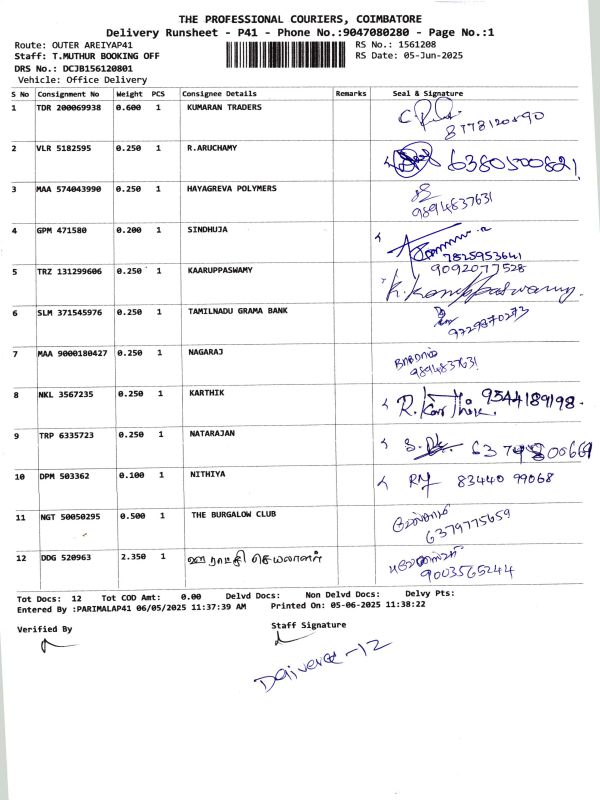 THE PROFESSIONAL COURIERS, COIMBATORE
Delivery Runsheet - P41 - Phone No.:9047080280 - Page No.:1
Route: OUTER AREIYAP41 RS No.: 1561208
Staff: T.MUTHUR BOOKING OFF RS Date: 05-Jun-2025
DRS No.: DCJB156120801
Vehicle: Office Delivery
S No Consignment No Weight PCS Consignee Details Remarks Seal & Signature
1 TDR 200069938 0.600 1 KUMARAN TRADERS
2 VLR 5182595 0.250 1 R.ARUCHAMY 6380500821
3 MAA 574043990 0.250 1 HAYAGREVA POLYMERS
9894837631
4 GPM 471580 0.200 1 SINDHUJA
7825953641
5 TRZ 131299606 0.250 1 KAARUPPASWAMY 9092077528
K. Karuppaswamy.
6 SLM 371545976 0.250 1 TAMILNADU GRAMA BANK
7 MAA 9000180427 0.250 1 NAGARAJ நாகராஜ்
9894837631
8 NKL 3567235 0.250 1 KARTHIK R. Karthik. 9344189198
9 TRP 6335723 0.250 1 NATARAJAN
10 DPM 503362 0.100 1 NITHIYA 83440 99068
11 NGT 50050295 0.500 1 THE BURGALOW CLUB
6379775659
12 DDG 520963 2.350 1 ஊராட்சி செயலாளர்
9003565244
Tot Docs: 12 Tot COD Amt: 0.00 Delvd Docs: Non Delvd Docs: Delvy Pts:
Entered By :PARIMALAP41 06/05/2025 11:37:39 AM Printed On: 05-06-2025 11:38:22
Verified By Staff Signature
Delivered - 12